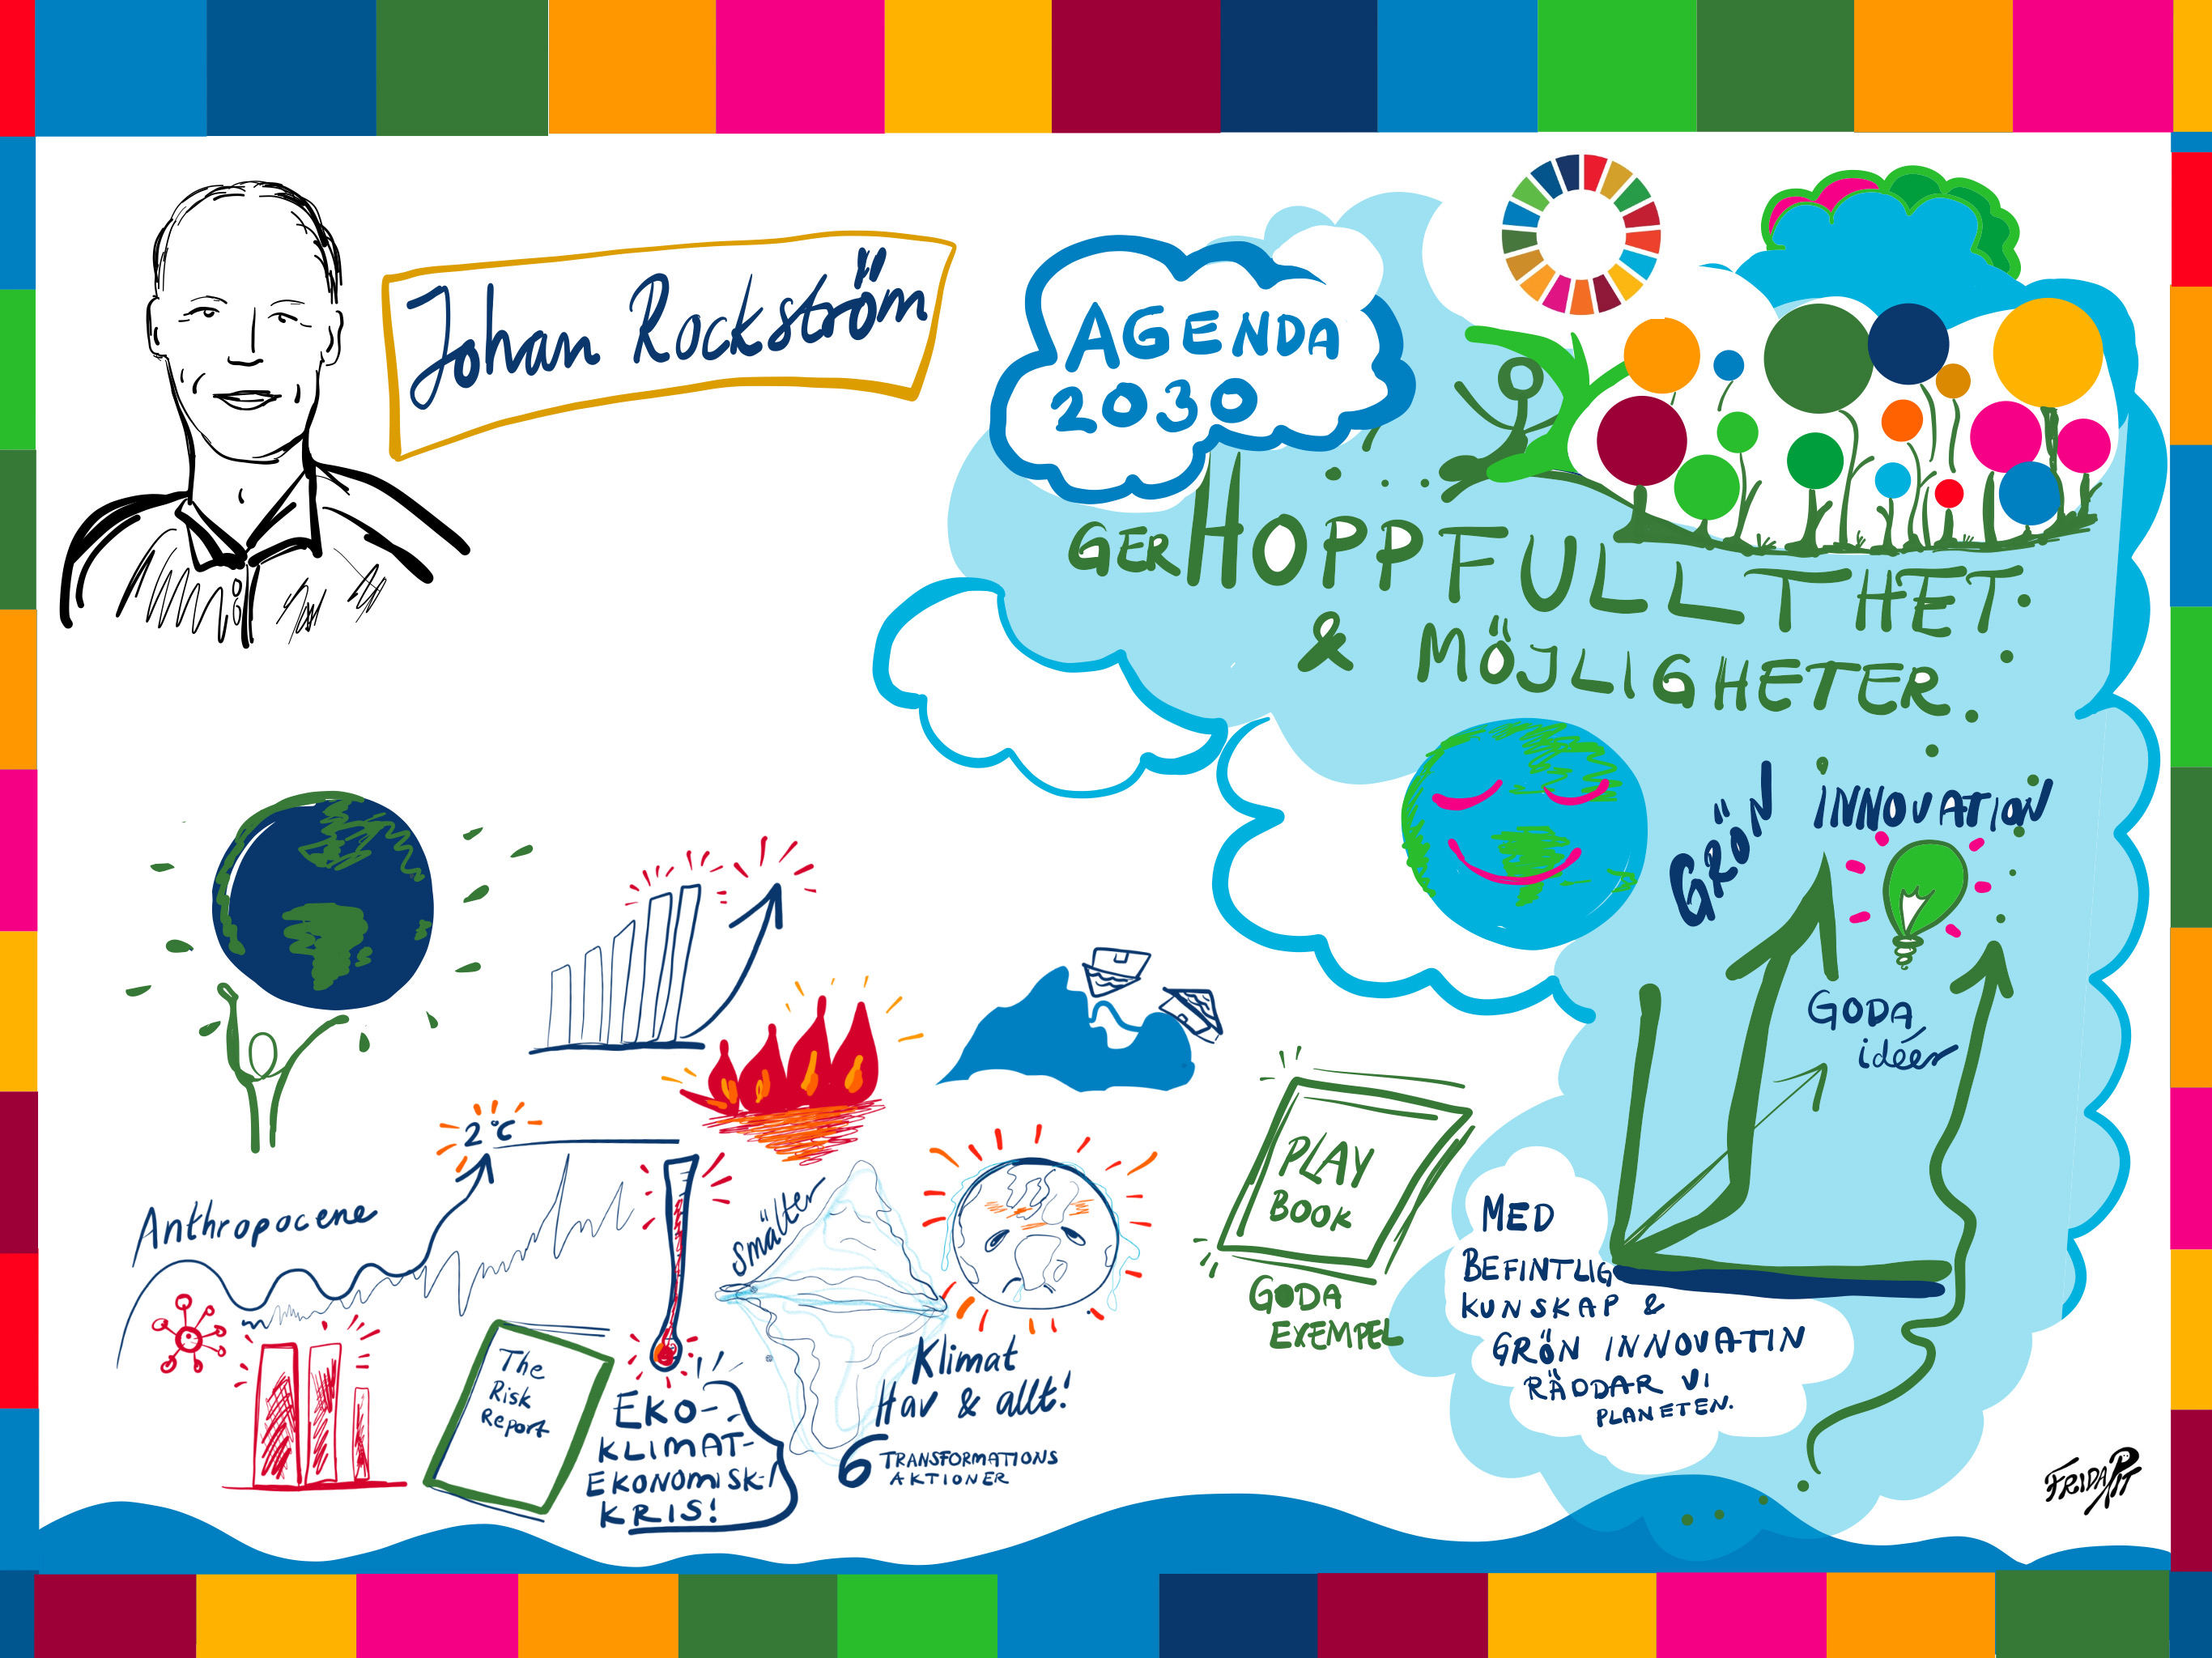 Johan Rockström
AGENDA
2030
GER HOPPFULLTHET
& MÖJLIGHETER.
GRÖN INNOVATION
GODA
idéer
PLAY
BOOK
GODA
EXEMPEL
MED
BEFINTLIG
KUNSKAP &
GRÖN INNOVATIN
RÄDDAR VI
PLANETEN.
2°C
Anthropocene
smälter
The
Risk
Report
EKO-
KLIMAT-
EKONOMISK-
KRIS!
Klimat
Hav & allt!
6 TRANSFORMATIONS
AKTIONER
FRIDA PIT